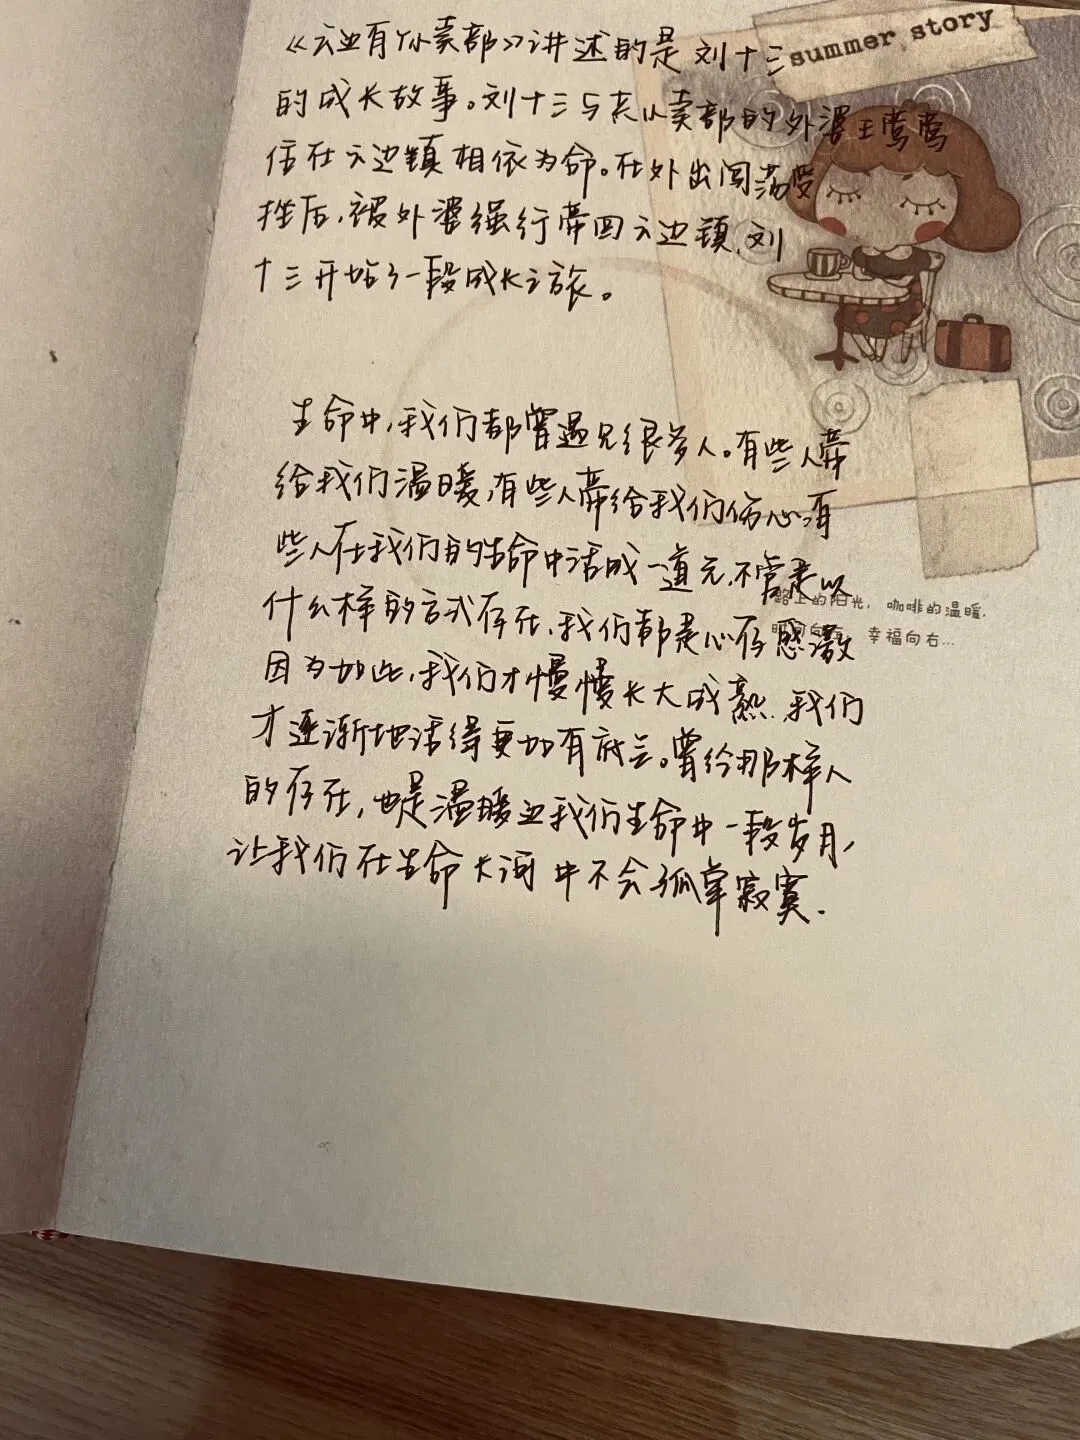 summer story
《云边有个小卖部》讲述的是刘十三
的成长故事。刘十三与开小卖部的外婆王莺莺
住在云边镇相依为命。在外出闯荡受
挫后,被外婆强行带回云边镇,刘
十三开始了一段成长之旅。
生命中,我们都曾遇见很多人。有些人带
给我们温暖,有些人带给我们伤心,有
些人在我们的生命中活成一道光,不管是以
什么样的方式存在,我们都是心存感激
因为如此,我们才慢慢长大成熟,我们
才逐渐地活得更加有
的存在,也是温暖 我们生命中一段岁月,
让我们在生命长河中不会孤单寂寞.
路上的阳光,咖啡的温暖,
幸福向右...